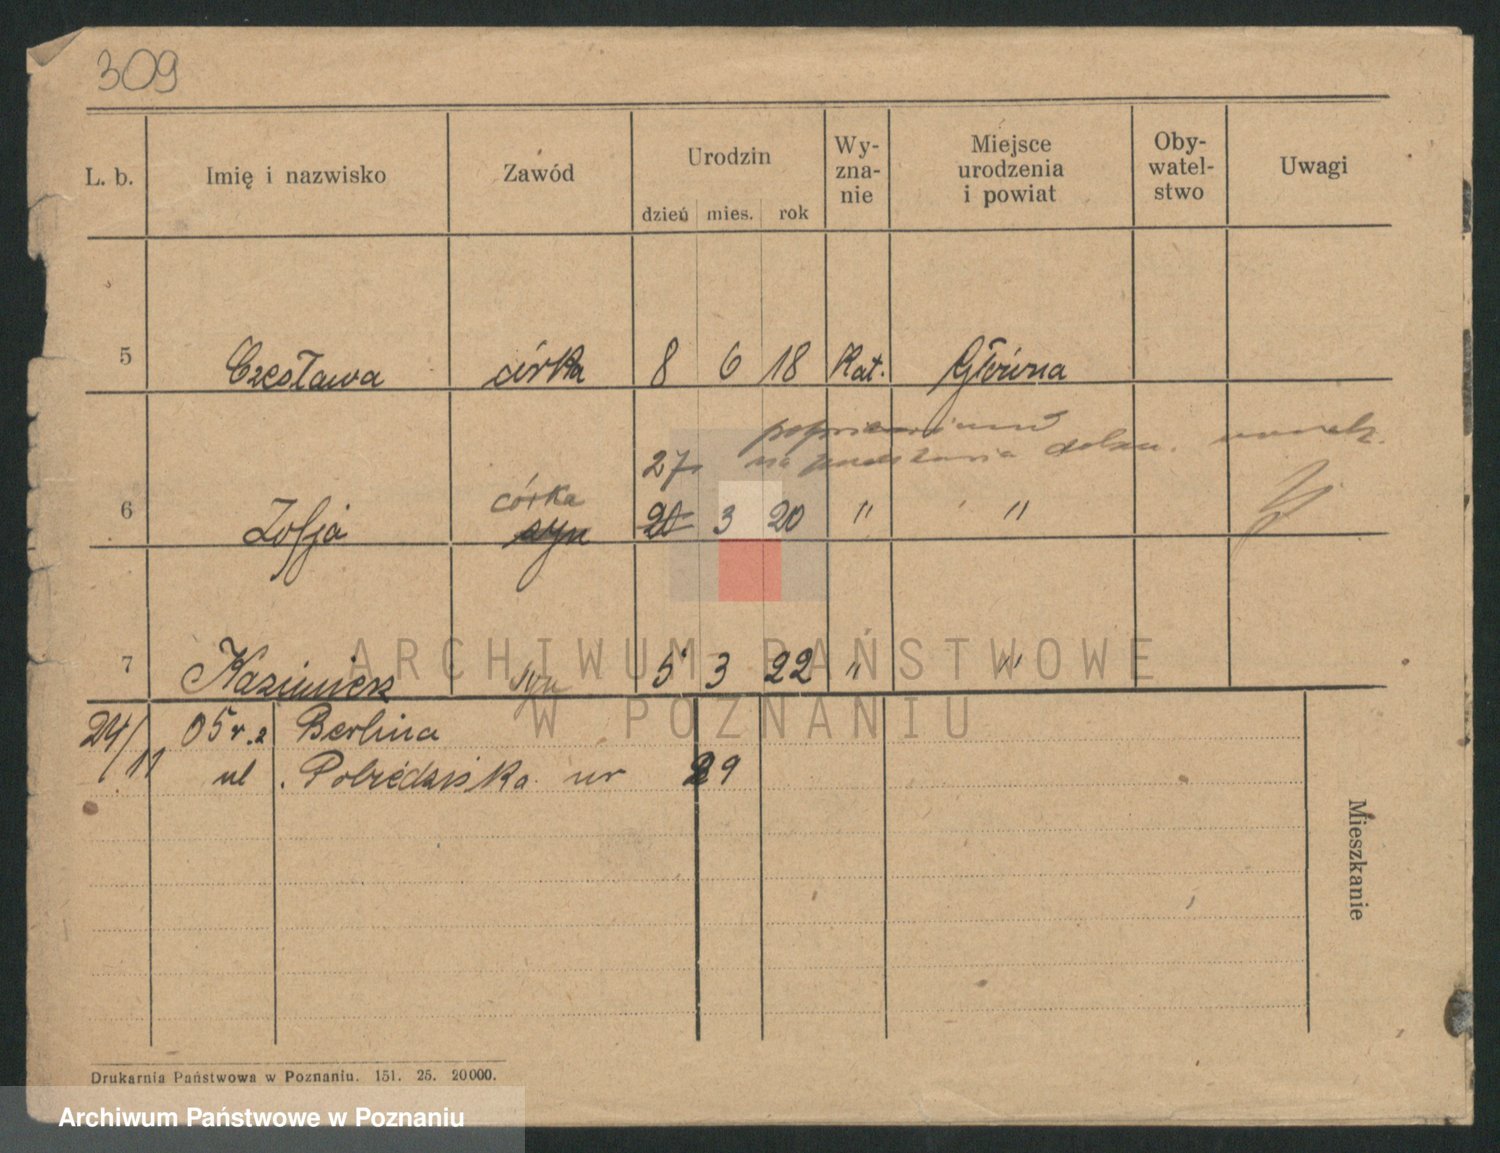 309
L. b. Imię i nazwisko Zawód Urodzin Wy-zna-nie Miejsce urodzenia i powiat Oby-watel-stwo Uwagi
dzień mies. rok
5 Czesława córka 8 6 18 Kat. Główna
27
córka
6 Zofja syn 20 3 20 " "
7 Kazimierz syn 5 3 22 " "
24/11 05 r. z Berlina
ul. nr 29
Mieszkanie
Drukarnia Państwowa w Poznaniu. 151. 25. 20000.
ARCHIWUM PAŃSTWOWE
W POZNANIU
Archiwum Państwowe w Poznaniu